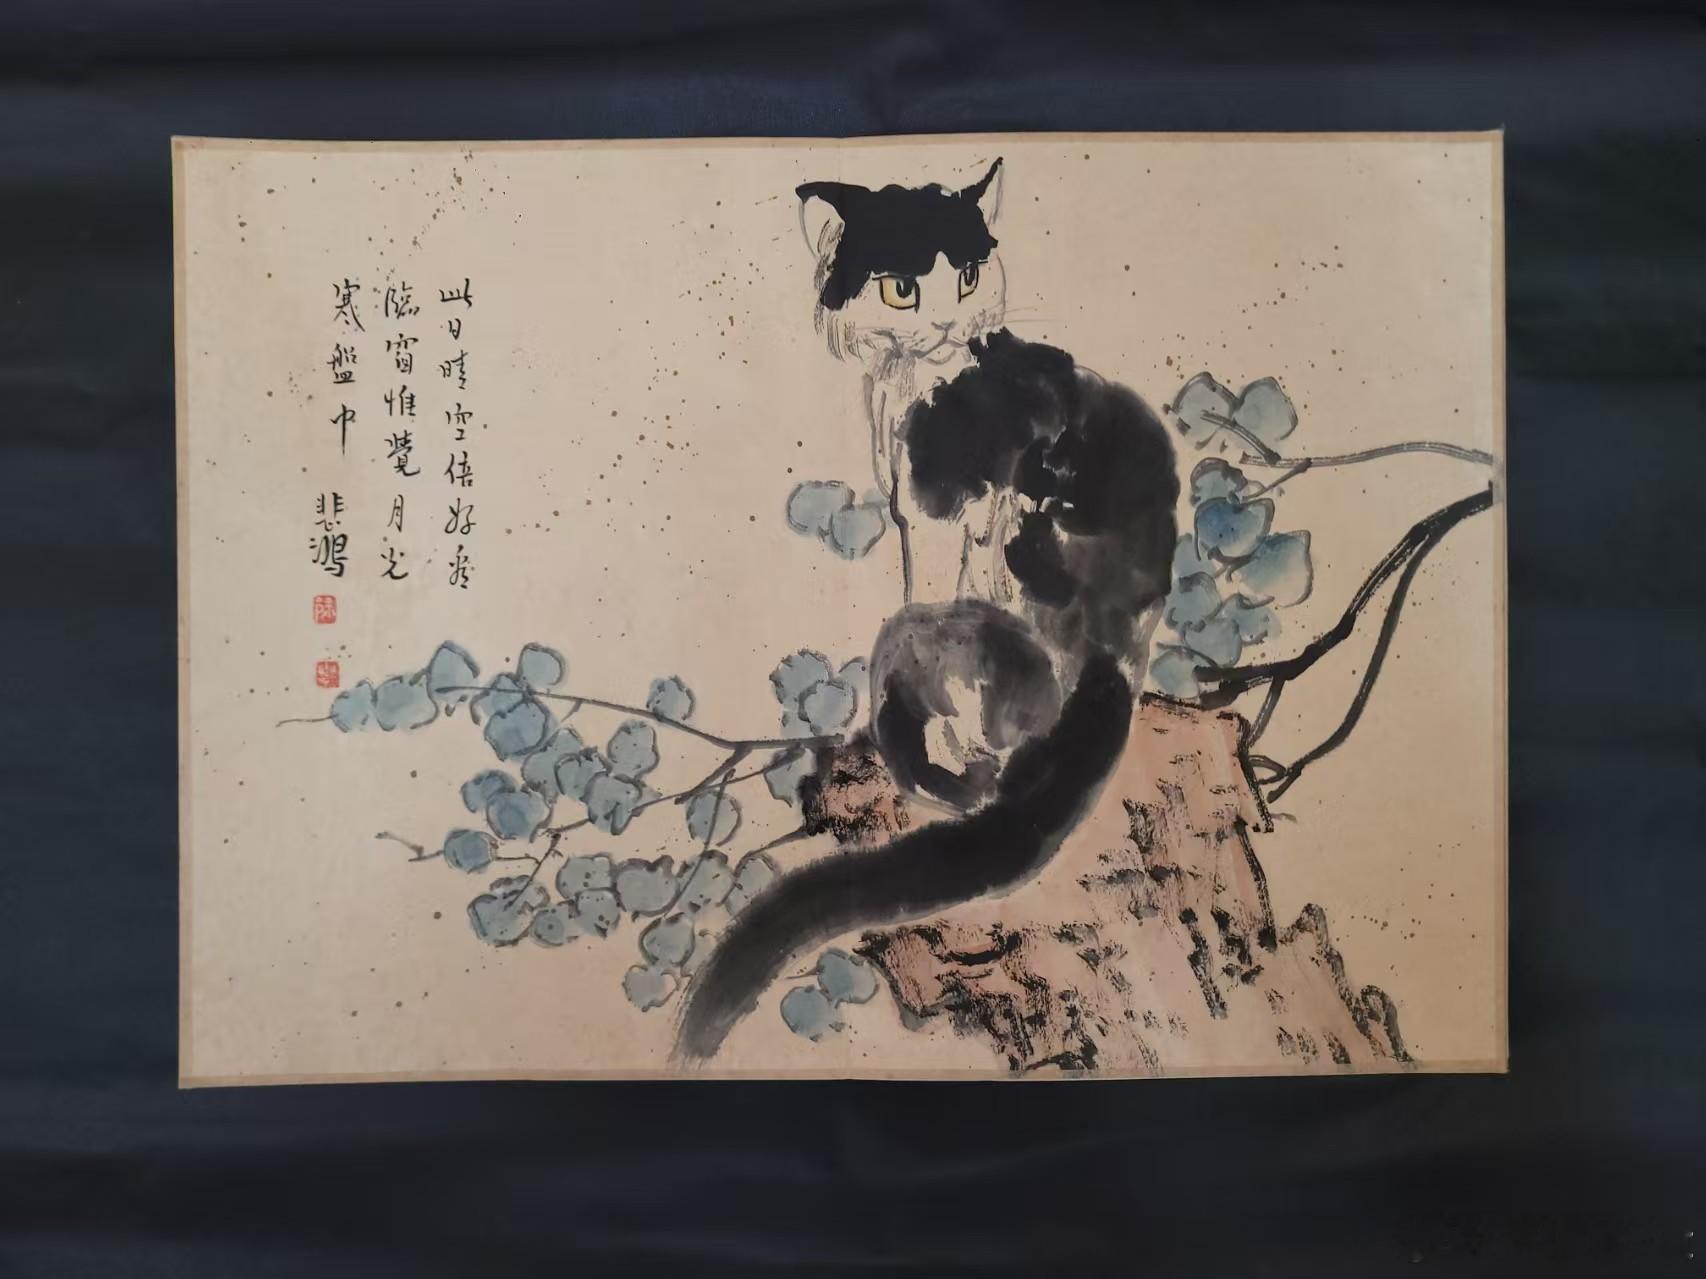 此日晴空倍好看
臨窗惟覺月光
寒盤中
悲鴻